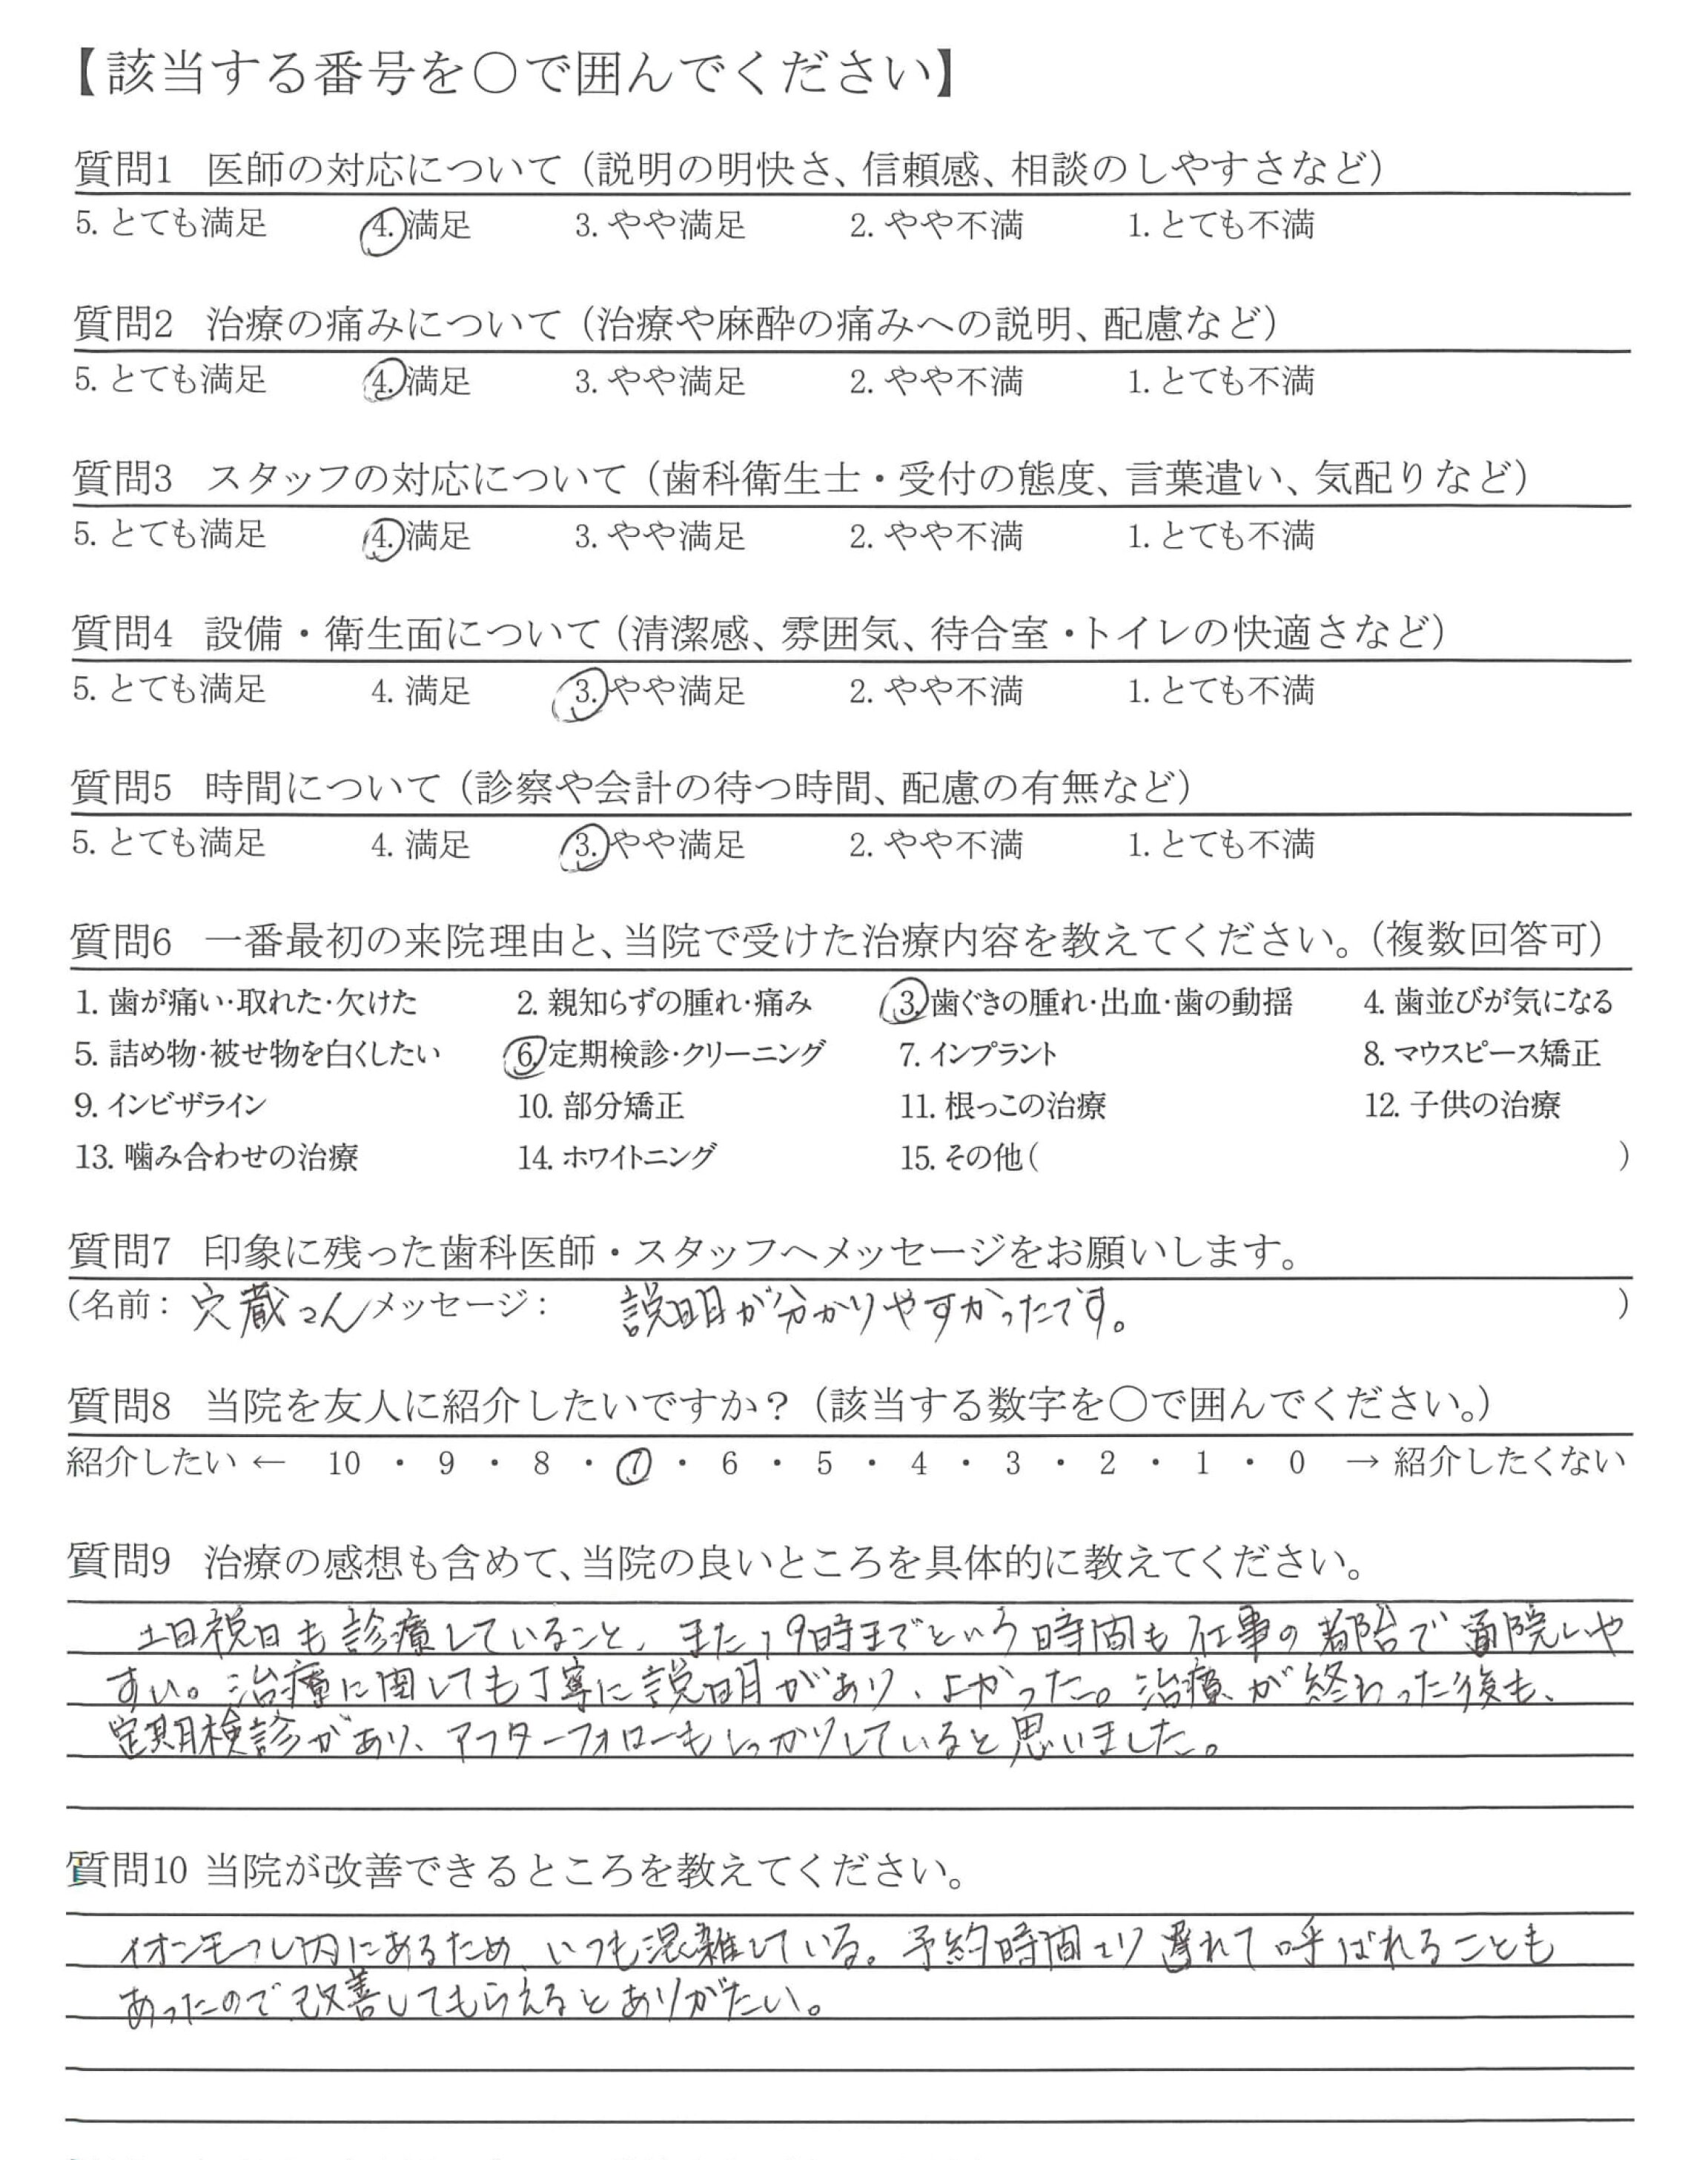 【該当する番号を〇で囲んでください】
質問1 医師の対応について（説明の明快さ、信頼感、相談のしやすさなど）
5. とても満足 4. 満足 3. やや満足 2. やや不満 1. とても不満
質問2 治療の痛みについて（治療や麻酔の痛みへの説明、配慮など）
5. とても満足 4. 満足 3. やや満足 2. やや不満 1. とても不満
質問3 スタッフの対応について（歯科衛生士・受付の態度、言葉遣い、気配りなど）
5. とても満足 4. 満足 3. やや満足 2. やや不満 1. とても不満
質問4 設備・衛生面について（清潔感、雰囲気、待合室・トイレの快適さなど）
5. とても満足 4. 満足 3. やや満足 2. やや不満 1. とても不満
質問5 時間について（診察や会計の待つ時間、配慮の有無など）
5. とても満足 4. 満足 3. やや満足 2. やや不満 1. とても不満
質問6 一番最初の来院理由と、当院で受けた治療内容を教えてください。（複数回答可）
1. 歯が痛い・取れた・欠けた 2. 親知らずの腫れ・痛み 3. 歯ぐきの腫れ・出血・歯の動揺 4. 歯並びが気になる
5. 詰め物・被せ物を白くしたい 6. 定期検診・クリーニング 7. インプラント 8. マウスピース矯正
9. インビザライン 10. 部分矯正 11. 根っこの治療 12. 子供の治療
13. 噛み合わせの治療 14. ホワイトニング 15. その他（ ）
質問7 印象に残った歯科医師・スタッフへメッセージをお願いします。
（名前：穴蔵さん メッセージ： 説明が分かりやすかったです。 ）
質問8 当院を友人に紹介したいですか？（該当する数字を〇で囲んでください。）
紹介したい ← 10 ・ 9 ・ 8 ・ 7 ・ 6 ・ 5 ・ 4 ・ 3 ・ 2 ・ 1 ・ 0 → 紹介したくない
質問9 治療の感想も含めて、当院の良いところを具体的に教えてください。
土日祝日も診療していること、また19時までという時間も仕事の都合で通院しや
すい。治療に関しても丁寧に説明があり、よかった。治療が終わった後も、
定期検診があり、アフターフォローもしっかりしていると思いました。
質問10 当院が改善できるところを教えてください。
イオンモール内にあるため、いつも混雑している。予約時間より遅れて呼ばれることも
あったので改善してもらえるとありがたい。